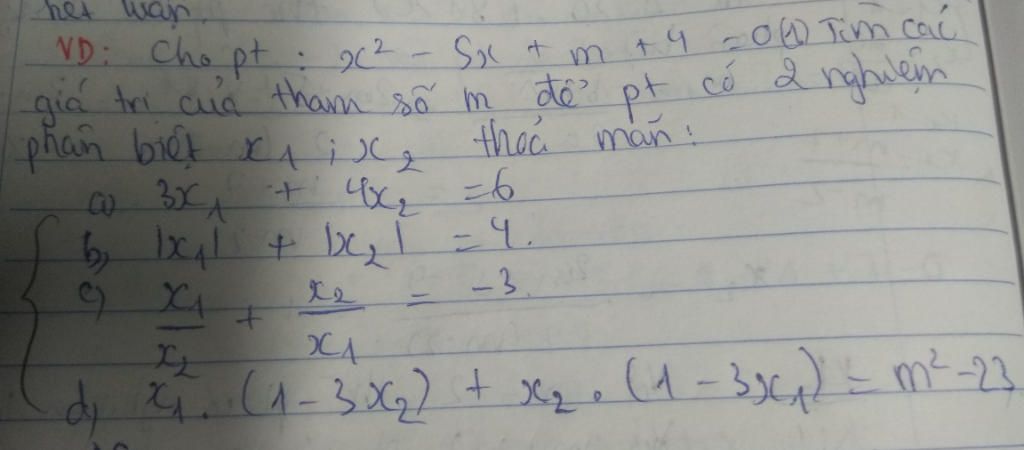 hết wạn.
VD: Cho pt : x² - 5x + m + 4 = 0 (1) Tìm các
giá trị của tham số m để pt có 2 nghiệm
phân biệt x₁ ; x₂ thoả mãn:
a) 3x₁ + 4x₂ = 6
b) |x₁| + |x₂| = 4.
c) x₁/x₂ + x₂/x₁ = -3.
d) x₁ . (1 - 3x₂) + x₂ . (1 - 3x₁) = m² - 23